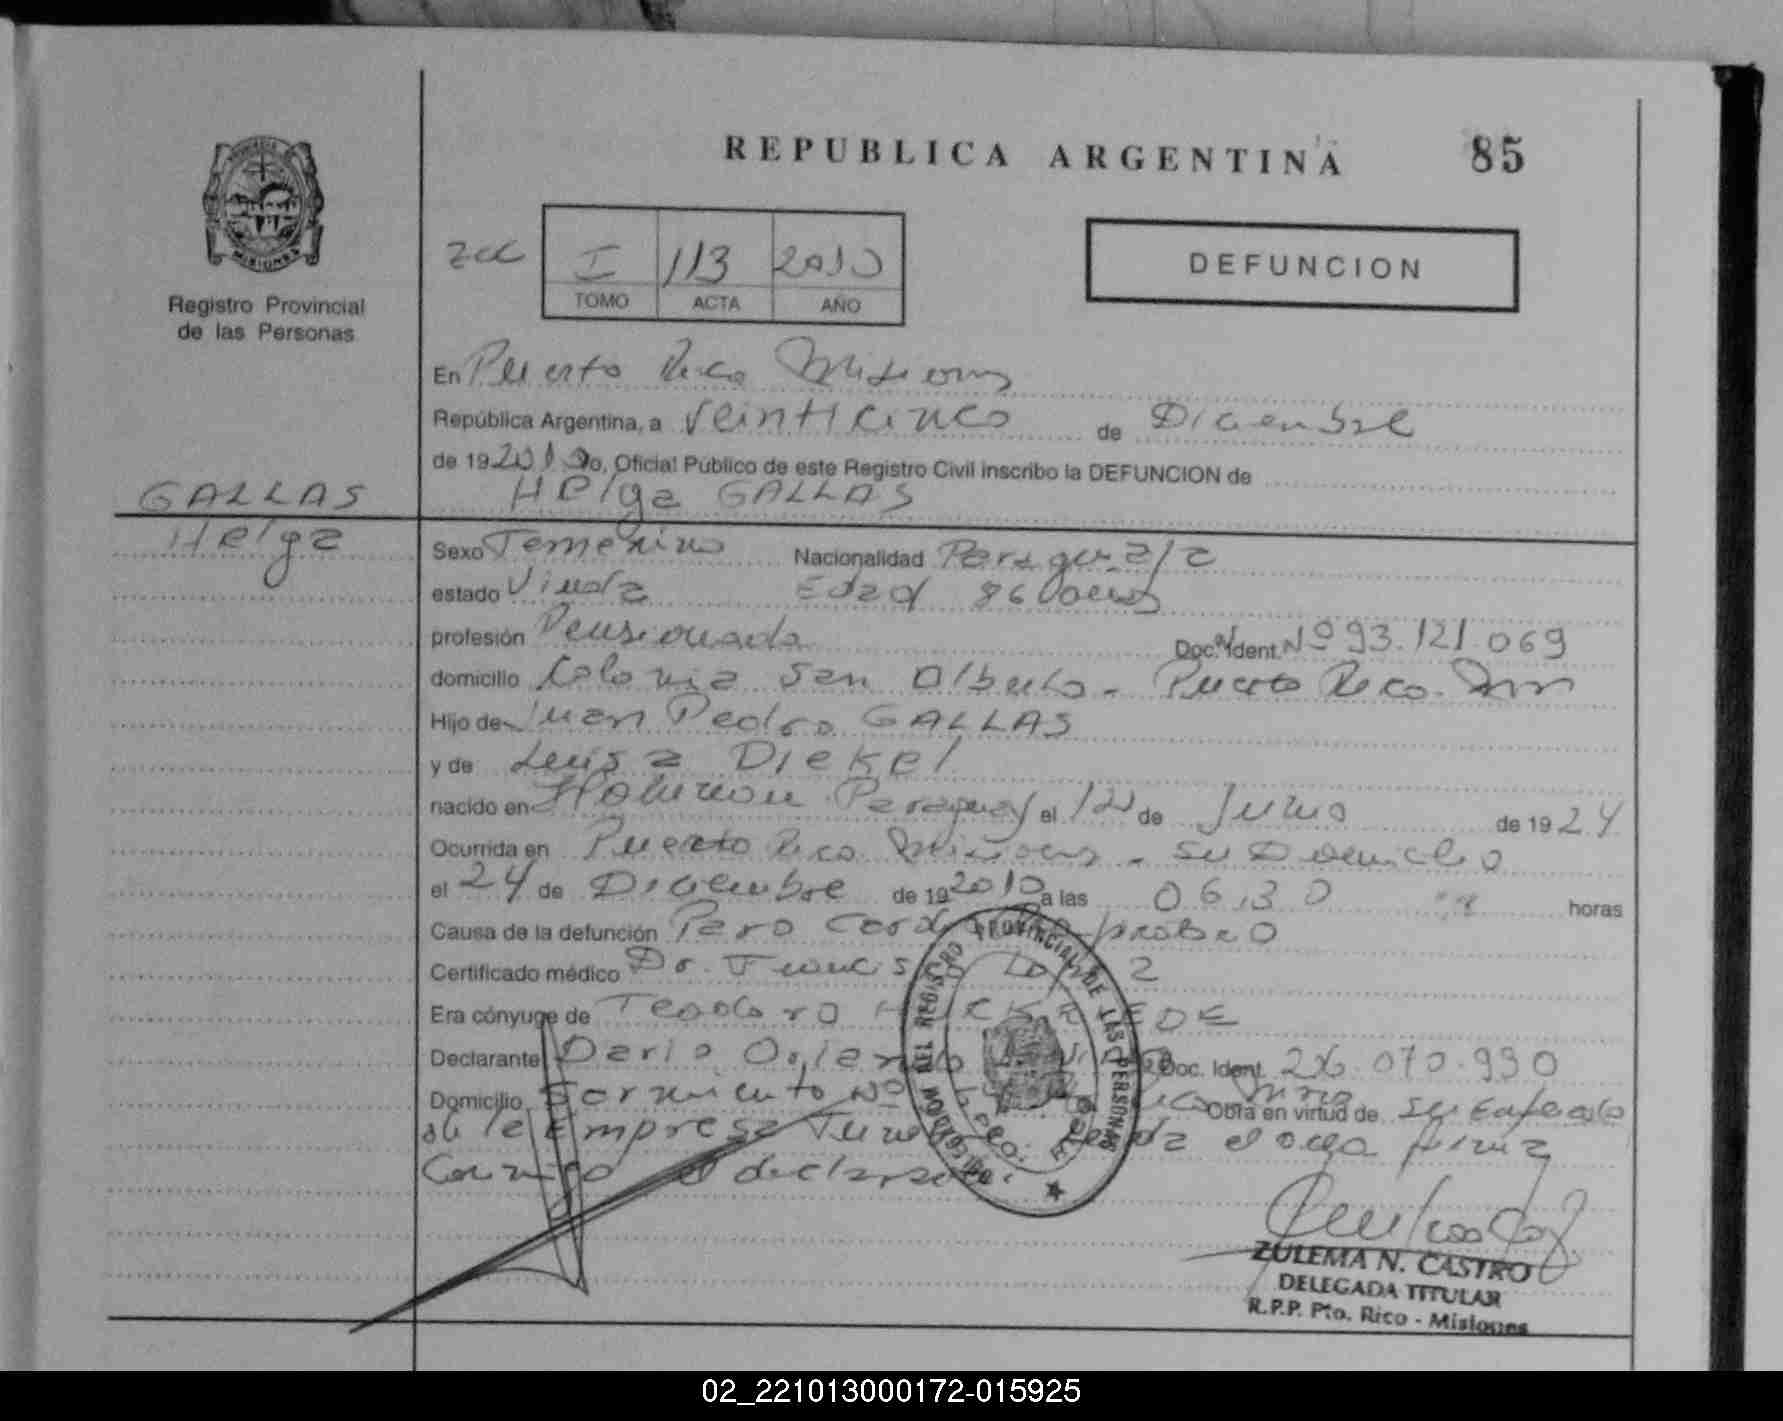 REPUBLICA ARGENTINA 85
PROVINCIA DE
MISIONES
Registro Provincial
de las Personas
I 113 2010
TOMO ACTA AÑO
DEFUNCION
En Puerto Rico Misiones
República Argentina, a Veinticinco de Diciembre
de 192010 Yo, Oficial Público de este Registro Civil inscribo la DEFUNCION de
GALLAS
Helga
Helga GALLAS
Sexo Femenino Nacionalidad Paraguaya
estado Viuda Edad 86 años
profesión Pensionada Doc. Ident. Nº 93.121.069
domicilio Colonia San Alberto - Puerto Rico. Mnes
Hijo de Juan Pedro GALLAS
y de Luisa Diekel
nacido en Paraguay el 12 de Junio de 1924
Ocurrida en Puerto Rico Misiones - su Domicilio
el 24 de Diciembre de 192010 a las 06,30 horas
Causa de la defunción Paro Cardio
Certificado médico Dr. Francisco
Era cónyuge de Teodoro
Declarante Dario Orlando Doc. Ident. 26.070.990
Domicilio Sarmiento Nº Obra en virtud de ser Empleado
de la Empresa firma
Conmigo el declarante.
REGISTRO PROVINCIAL DE LAS PERSONAS
ZULEMA N. CASTRO
DELEGADA TITULAR
R.P.P. Pto. Rico - Misiones
02_221013000172-015925